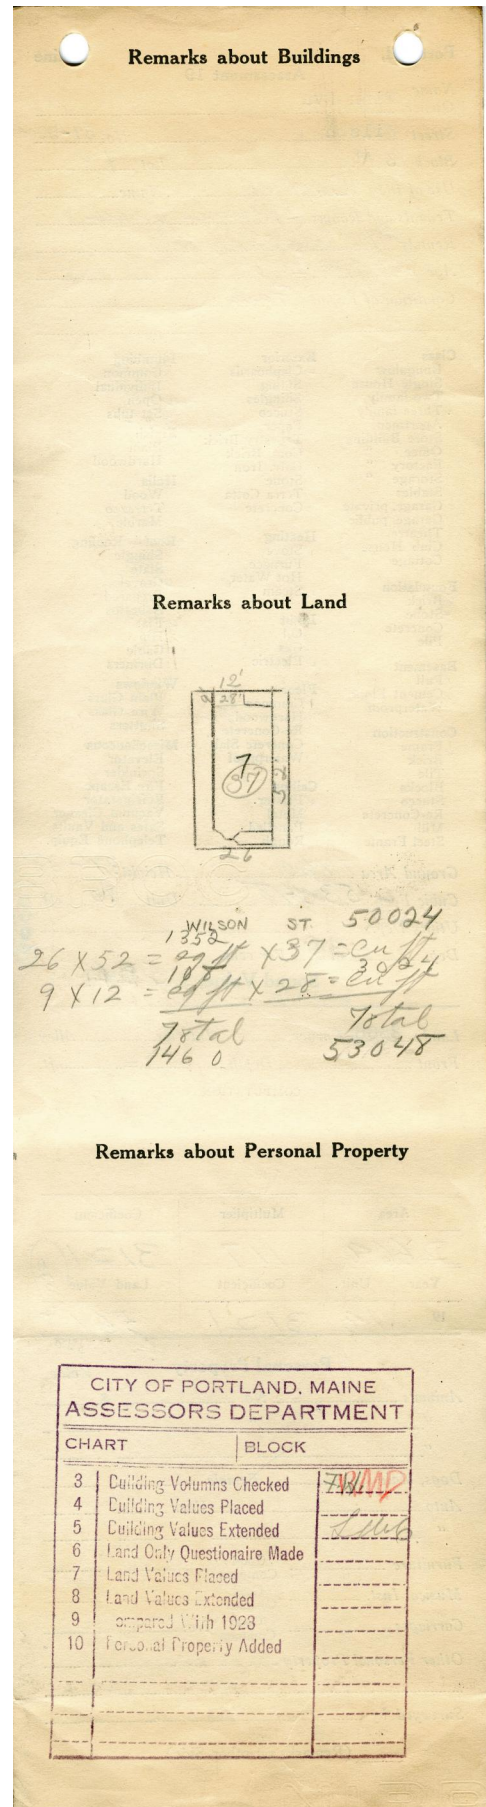 Remarks about Buildings
Remarks about Land
12'
9 28'
7
37
52'
26
WILSON ST. 50024
1352
26 X 52 = sq ft X 37 = cu ft
108 3024
9 X 12 = sq ft X 28 = cu ft
Total Total
1460 53048
Remarks about Personal Property
CITY OF PORTLAND, MAINE
ASSESSORS DEPARTMENT
CHART BLOCK
3 Building Volumns Checked
4 Building Values Placed
5 Building Values Extended
6 Land Only Questionaire Made
7 Land Values Placed
8 Land Values Extended
9 ompared With 1923
10 Personal Property Added